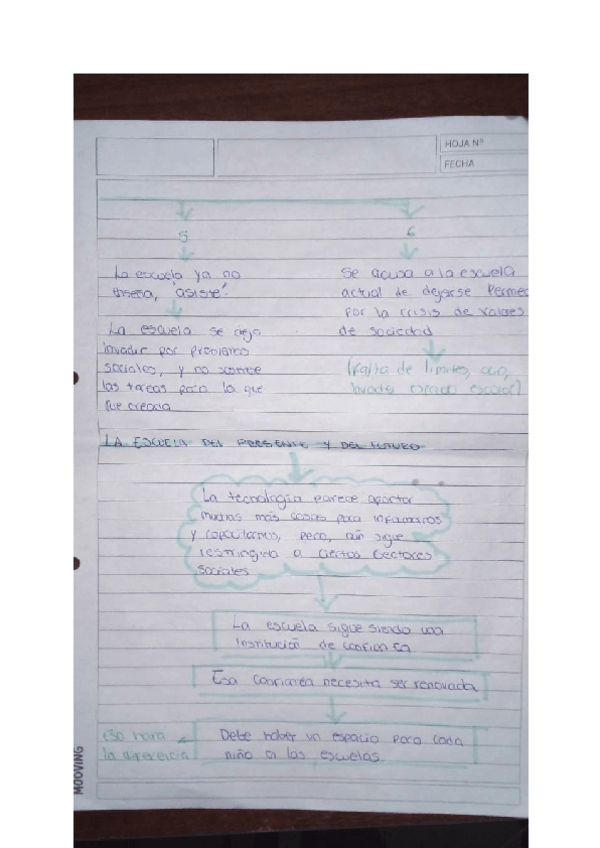 HOJA Nº
FECHA
5
6
La escuela ya no
enseña, "asiste".
Se acusa a la escuela
actual de dejarse Permea
por la crisis de valores
de sociedad
La escuela se deja
invadir por problemas
sociales, y no
las tareas para la que
fue creada
(Falta de limites, ocio,
invade espacio escolar)
LA ESCUELA DEL PRESENTE Y DEL FUTURO
La tecnología parece aportar
muchas más cosas para informarnos
y capacitarnos, pero, aún sigue
restringida a ciertos sectores
sociales
La escuela sigue siendo una
institución de confianza
Esa confianza necesita ser renovada
Debe haber un espacio para cada
niño en las escuelas.
Eso hará
la diferencia
MOOVING